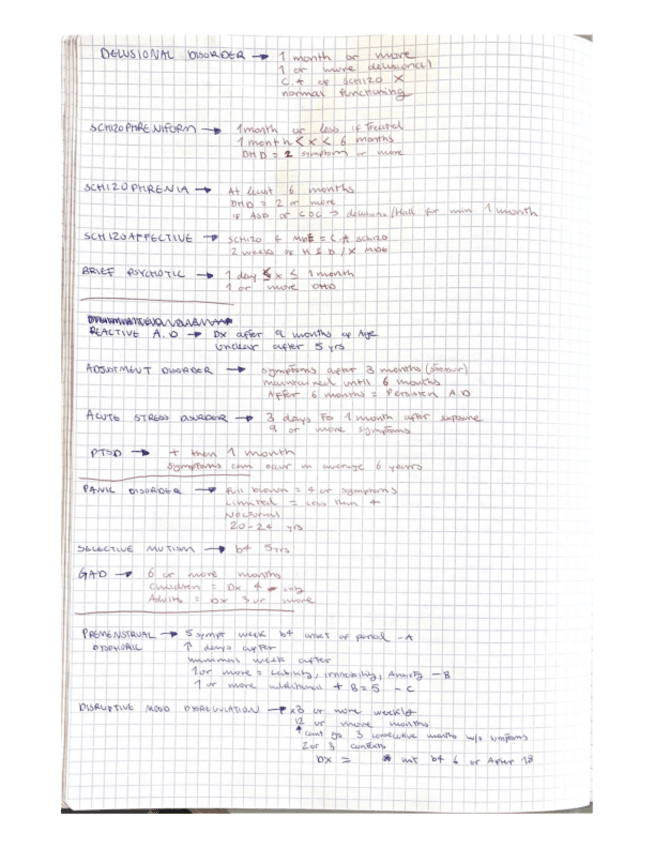 DELUSIONAL DISORDER → 1 month or more
1 or more delusional)
C.A of SCHIZO X
normal functioning
SCHIZOPHRENIFORM → 1 month or less if treated
1 month < x < 6 months
DHD = 2 symptom or more
SCHIZOPHRENIA → At least 6 months
DHD = 2 or more
IF ASD or COC → delusions/Hall for min 1 month
SCHIZOAFFECTIVE → SCHIZO & MDE = C.A SCHIZO
2 weeks of H & D / X MDE
BRIEF PSYCHOTIC → 1 day ≤ x ≤ 1 month
1 or more DHD
REACTIVE A.D → DX after 9 months of Age
Unclear after 5 yrs
ADJUSTMENT DISORDER → symptoms after 3 months (stressor)
maintained until 6 months
AFTER 6 months = Persisten A.D
ACUTE STRESS DISORDER → 3 days to 1 month after exposure
9 or more symptoms
PTSD → + then 1 month
symptoms can occur in average 6 years
PANIC DISORDER → full blown = 4 or symptoms
Limited = less then 4
Nocturnal
20-24 yrs
SELECTIVE MUTISM → b4 5yrs
GAD → 6 or more months
Children = Dx 1 only
Adults = DX 3 or more
PREMENSTRUAL → 5 sympt week b4 onset of period - A
DYSPHORIC ↑ days after
minimal week after
1 or more = Lability, irritability, Anxiety - B
1 or more additional + B = 5 - C
DISRUPTIVE MOOD DYSREGULATION → x3 or more weekly
12 or more months
↑ cant go 3 consecutive months w/o symptoms
2 or 3 contexts
DX = * not b4 6 or After 18